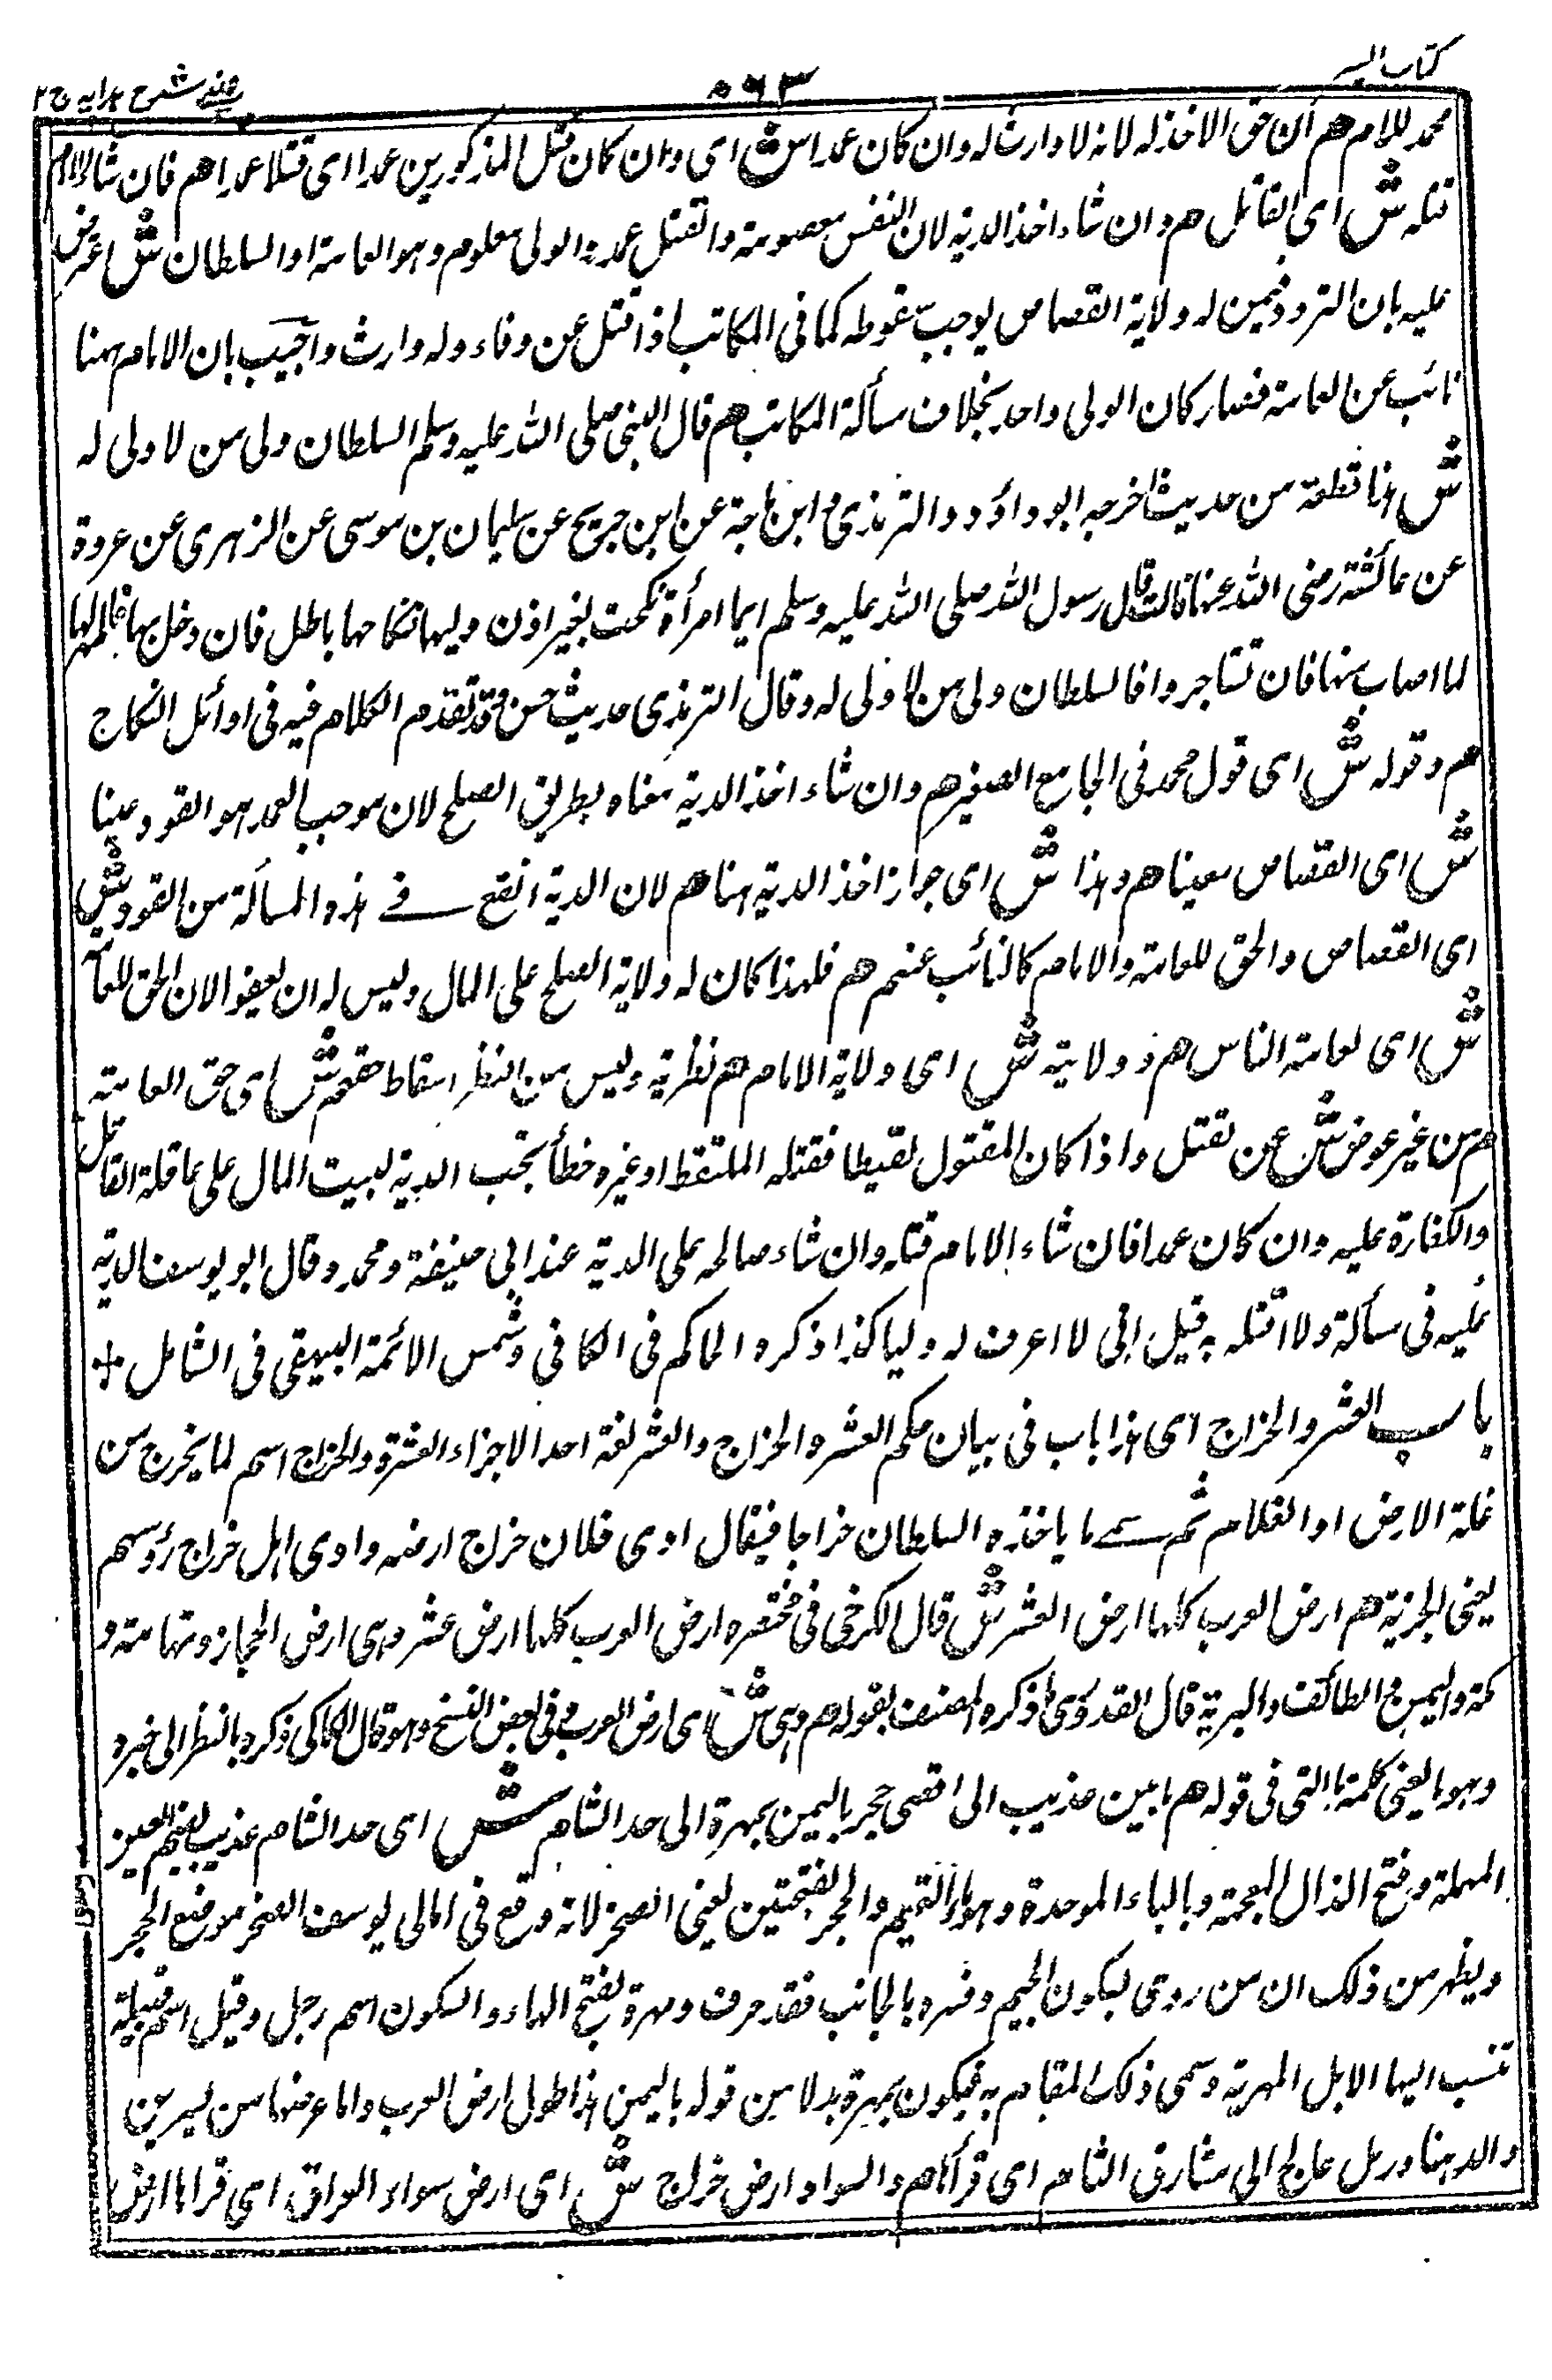 كتاب السير
٥٦٣
عينى شرح هدايه ج ٢
محمد للامام هم ان حق الاخذ له لانه لا وارث له وان كان عمدا ش اى وان كان قتل المذكورين عمدا اى قتلا عمدا هم فان شاء الامام
قتله ش اى القاتل هم وان شاء اخذ الدية لان النفس معصومة والقتل عمد والولى معلوم وهو العامة او السلطان ش اعترض
عليه بان التردد فيمن له ولاية القصاص يوجب سقوطه كما فى المكاتب اذا قتل عن وفاء وله وارث واجيب بان الامام ههنا
نائب عن العامة فصار كان الولى واحد بخلاف مسألة المكاتب هم قال النبى صلى الله عليه وسلم السلطان ولى من لا ولى له
ش هذا قطعة من حديث اخرجه ابو داؤد والترمذى و ابن ماجة عن ابن جريج عن سليمان بن موسى عن الزهرى عن عروة
عن عائشة رضى الله عنها قالت قال رسول الله صلى الله عليه وسلم ايما امرأة نكحت بغير اذن وليها فنكاحها باطل فان دخل بها فلها المهر
لما اصاب منها فان تشاجروا فالسلطان ولى من لا ولى له وقال الترمذى حديث حسن وقد تقدم الكلام فيه فى اوائل النكاح
هم وقوله ش اى قول محمد فى الجامع الصغير هم وان شاء اخذ الدية معناه بطريق الصلح لان موجب العمد هو القود عينا
ش اى القصاص معينا هم وهذا ش اى جواز اخذ الدية هنا هم لان الدية انفع فى هذه المسألة من القود ش
اى القصاص والحق للعامة والامام كالنائب عنهم هم فلهذا كان له ولاية الصلح على المال وليس له ان يعفو لان الحق للعامة
ش اى لعامة الناس هم و ولايته ش اى ولاية الامام هم نظرية وليس من النظر اسقاط حقهم ش اى حق العامة
هم من غير عوض ش عن تقتل واذا كان المقتول لقيطا فقتله الملتقط او غيره خطأ تجب الدية لبيت المال على عاقلة القاتل
والكفارة عليه وان كان عمدا فان شاء الامام قتله وان شاء صالحه على الدية عند ابى حنيفة ومحمد وقال ابو يوسف الدية
عليه فى مسألة ولا اقتله به قبل انى لا اعرف له وليا كذا ذكره الحاكم فى الكافى وشمس الائمة البيهقى فى الشامل
باب العشر والخراج اى هذا باب فى بيان حكم العشر والخراج والعشر لغة احد الاجزاء العشرة والخراج اسم لما يخرج من
غلة الارض او الغلام ثم سمى ما ياخذه السلطان خراجا فيقال ادى فلان خراج ارضه وادى اهل خراج رؤسهم
يعنى الجزية هم ارض العرب كلها ارض العشر ش قال الكرخى فى مختصره ارض العرب كلها ارض عشر وهى ارض الحجاز وتهامة و
مكة واليمن و الطائف والبرية قال القدورى ذكره المصنف بقوله هم وهى ش اى ارض العرب وفى بعض النسخ وهو قال الكاكى ذكره بالنظر الى خبره
وهو ما يعنى كلمة ما التى فى قوله هم ما بين عذيب الى اقصى حجر باليمن بمهرة الى حد الشام ش اى حد الشام عذيب بضم العين
المهملة وفتح الذال المعجمة وبالباء الموحدة وهو ماء لتميم والحجر بفتحتين يعنى الصخر لانه وقع فى امالى يوسف الصخر موضع الحجر
ويظهر من ذلك ان من روى بسكون الجيم وفسره بالجانب فقد حرف ومهرة بفتح الهاء والسكون اسم رجل وقيل اسم قبيلة
تنسب اليها الابل المهرية وسمى ذلك المقام به فيكون بمهرة بدلا من قوله باليمن هذا طول ارض العرب واما عرضها من يبرين
والدهنا ورمل عالج الى مشارق الشام اى قراها هم والسواد ارض خراج ش اى ارض سواد العراق اى قراها ارض